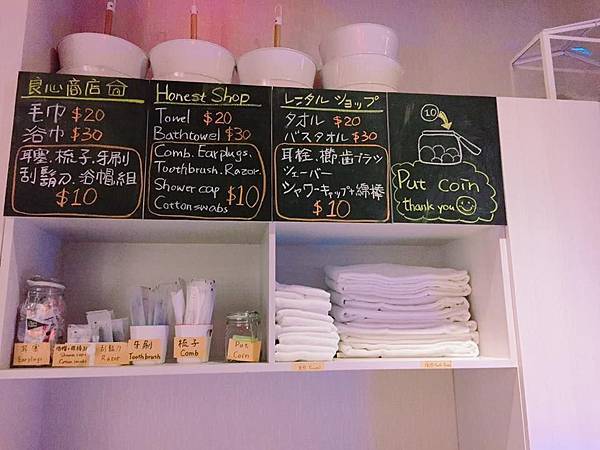 良心商店
毛巾 $20
浴巾 $30
耳塞.梳子.牙刷
刮鬍刀.浴帽組
$10
Honest Shop
Towel $20
Bathtowel $30
Comb. Earplugs.
Toothbrush. Razor.
Shower cap
Cotton swabs
$10
レンタル ショップ
タオル $20
バスタオル $30
耳栓.櫛.歯ブラシ
シェーバー
シャワーキャップ+綿棒
$10
10
Put coin
thank you
耳塞
Earplugs
Shower caps
Cotton swabs
刮鬍刀
Razor
牙刷
Toothbrush
梳子
Comb
Put
Coin